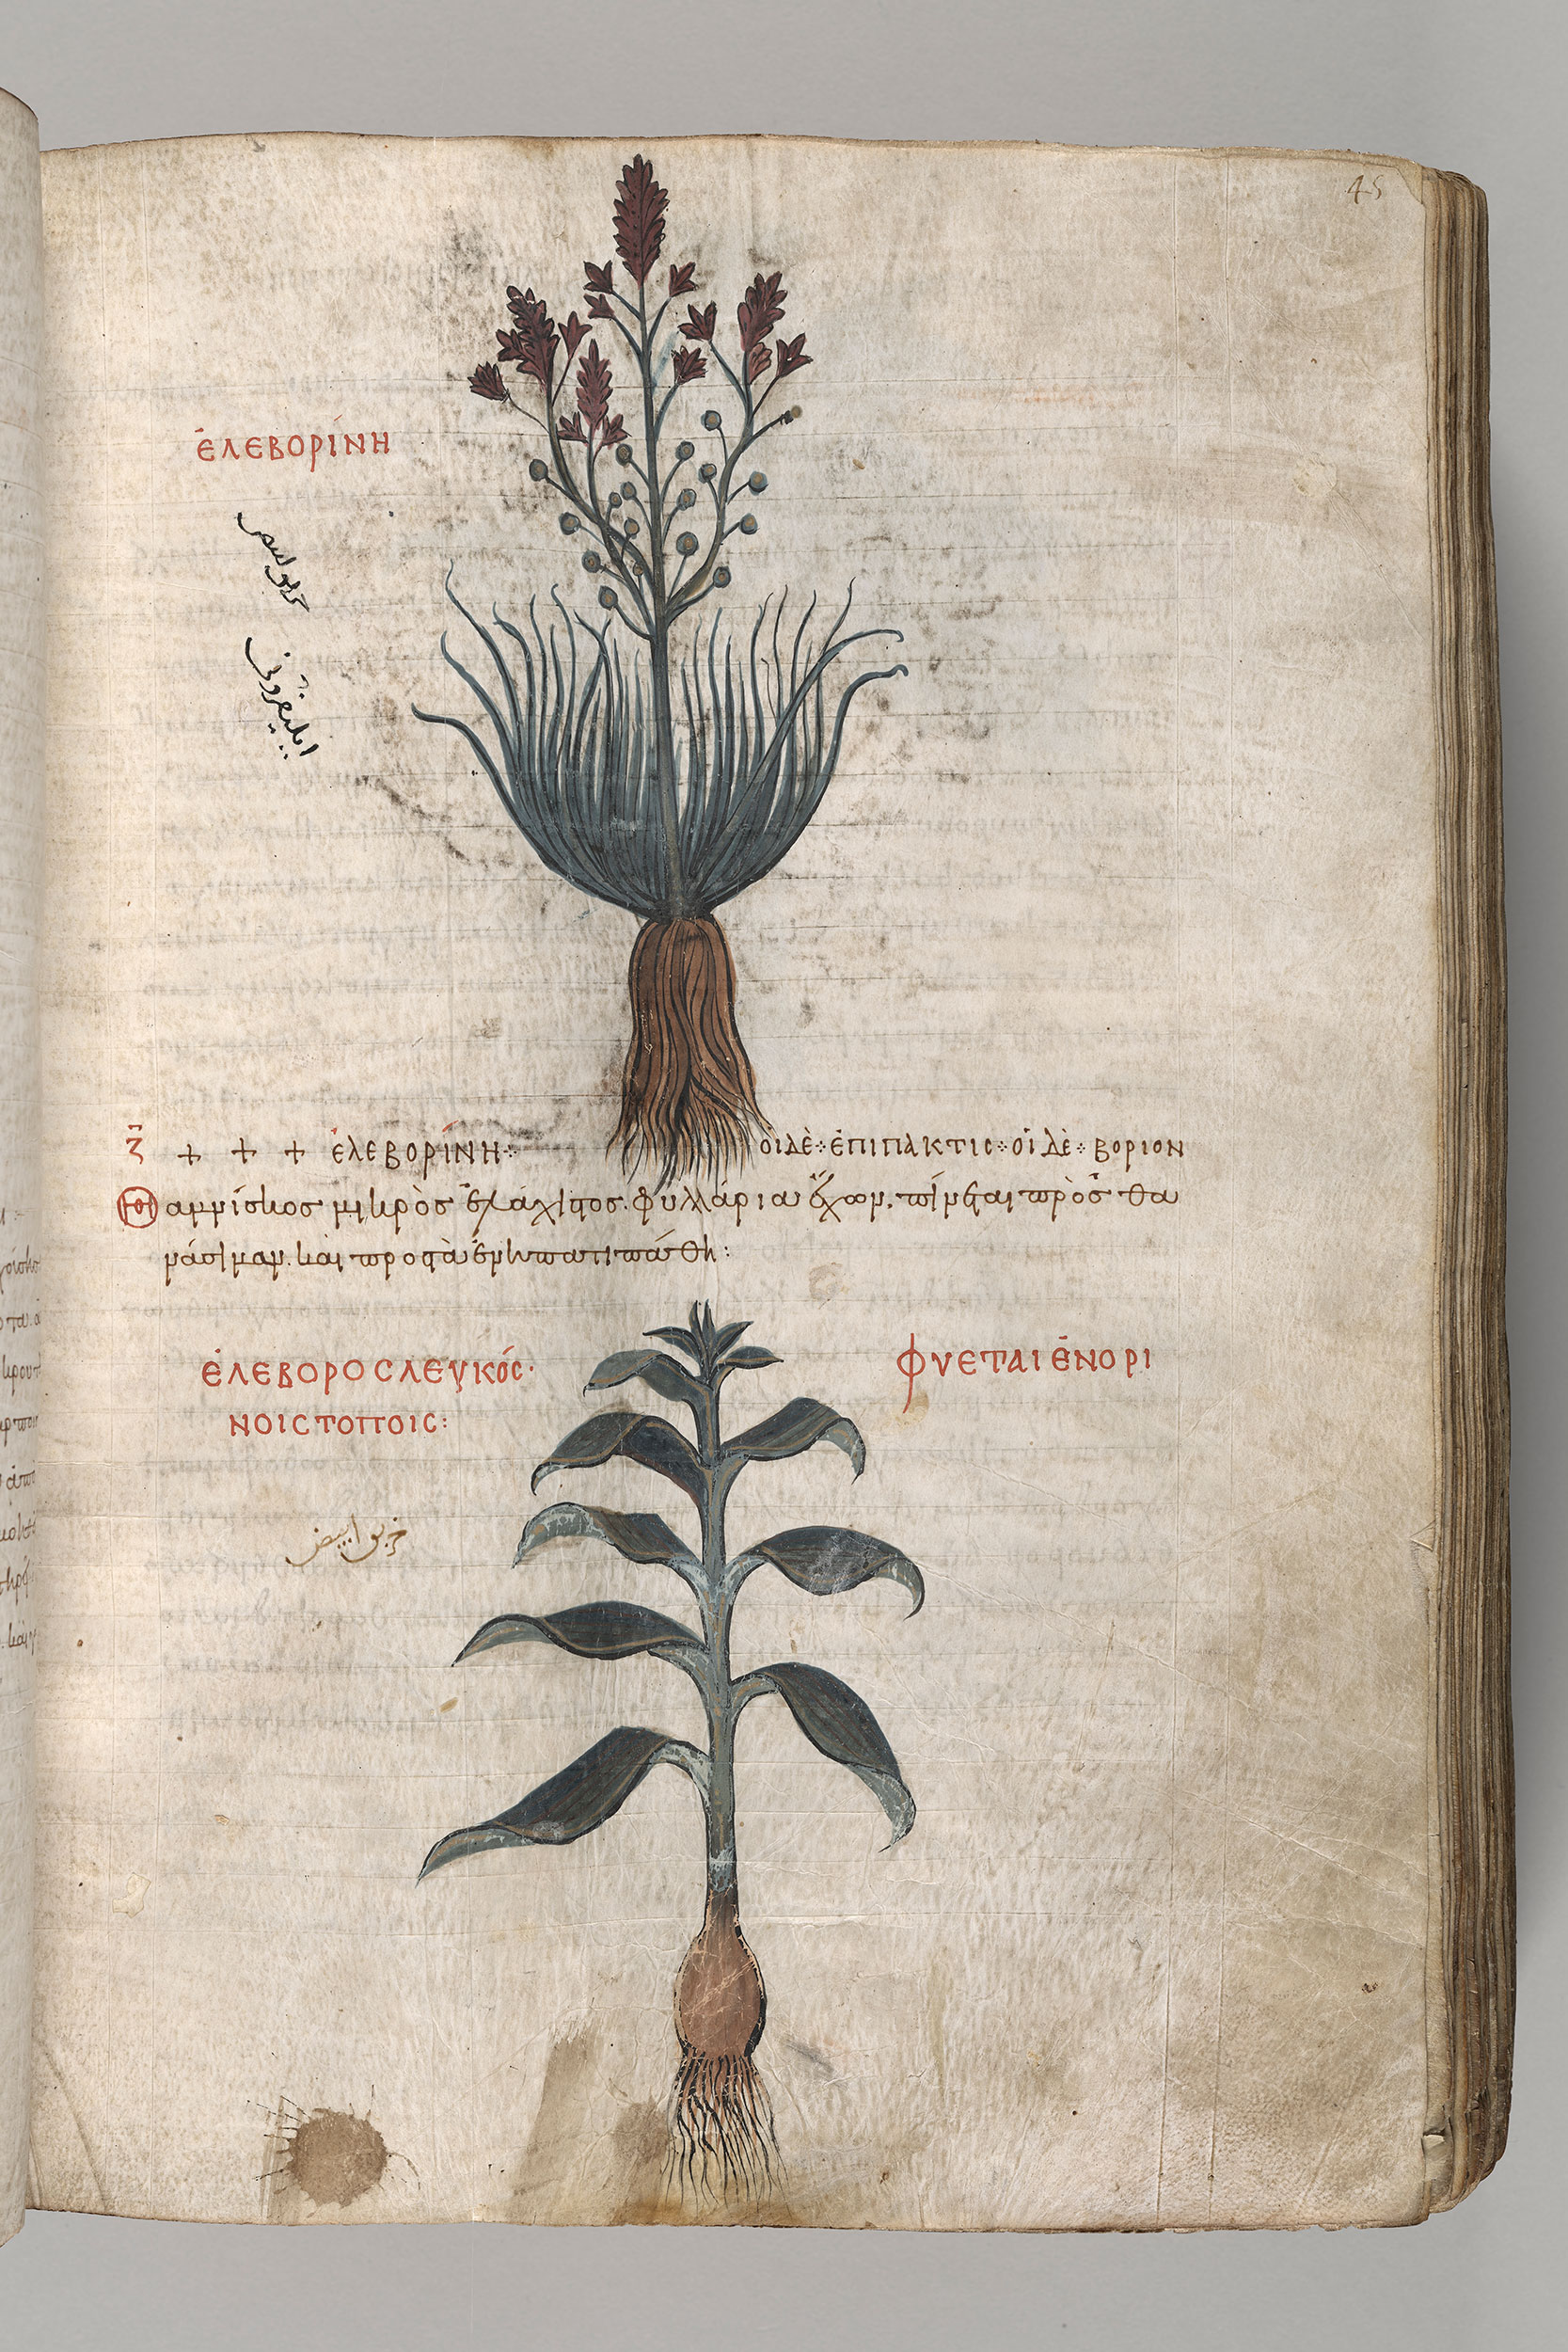 45
ἐλεβορίνη
خربق ابيض
ζ + + + ἐλεβορίνη⁘ οἱ δὲ⁘ ἐπιπακτις⁘ οἱ δὲ⁘ βοριον
θαμνίσκος μικρὸς ἐλάχιστος. φυλλάρια ἔχων. πίνεται πρὸς θα
νάσιμον. καὶ προς τὰ ἐν ἥπατι πάθη:
ἐλεβορος λευκός· φυεται ἐν ορι
νοις τοποις: